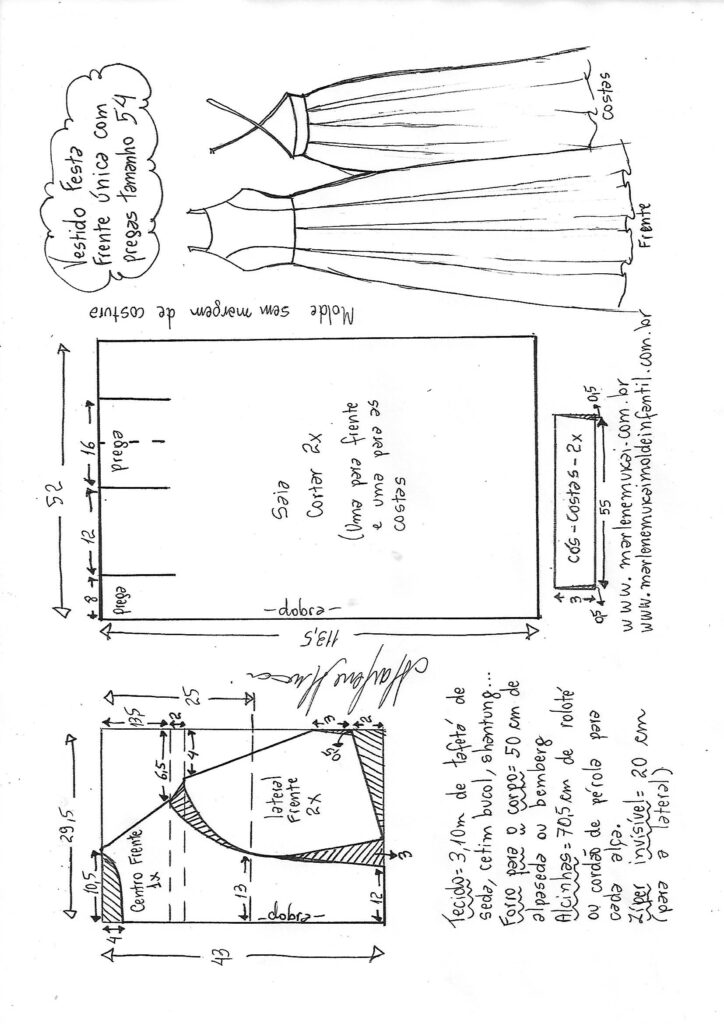 Vestido Festa
Frente única com
pregas tamanho 54
Costas
Frente
Molde sem margem de costura
52
8
12
16
prega
prega
Saia
Cortar 2x
(Uma para frente
e uma para as
costas
dobra
113,5
cós-costas-2x
3
0,5
55
0,5
www.marlenemukai.com.br
www.marlenemukaimoldeinfantil.com.br
Marlene Mukai
29,5
10,5
4
43
Centro Frente
1x
13,5
2
25
6,5
4
lateral
Frente
2x
3
0,5
2
13
dobra
12
3
Tecido= 3,10m de tafetá de
seda, cetim bucol, shantung...
Forro para o corpo= 50 cm de
alpaseda ou bemberg
Alcinhas= 70,5 cm de roloté
ou cordão de pérola para
cada alça.
Zíper invisível= 20 cm
(para a lateral)